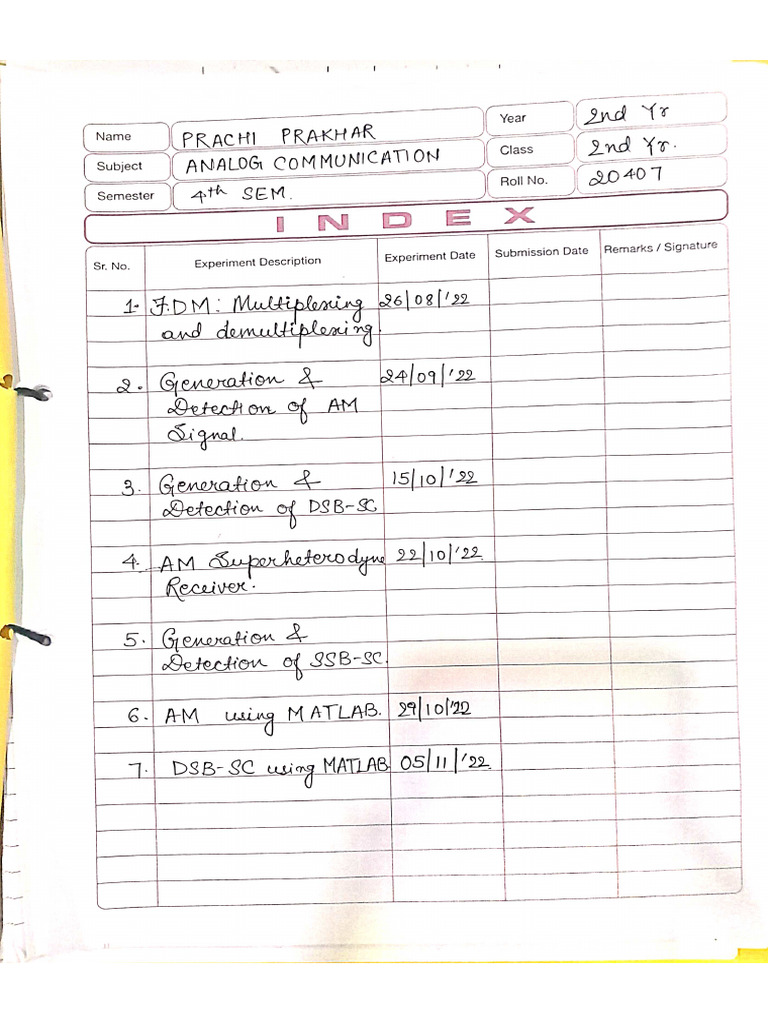 Name PRACHI PRAKHAR Year 2nd Yr
Subject ANALOG COMMUNICATION Class 2nd Yr.
Semester 4th SEM. Roll No. 20407
INDEX
Sr. No. Experiment Description Experiment Date Submission Date Remarks / Signature
1- F.D.M: Multiplexing 26/08/'22
and demultiplexing.
2. Generation & 24/09/'22
Detection of AM
Signal.
3. Generation & 15/10/'22
Detection of DSB-SC
4. AM Superheterodyne 22/10/'22
Receiver.
5. Generation &
Detection of SSB-SC.
6. AM using MATLAB. 29/10/'22
7. DSB-SC using MATLAB 05/11/'22